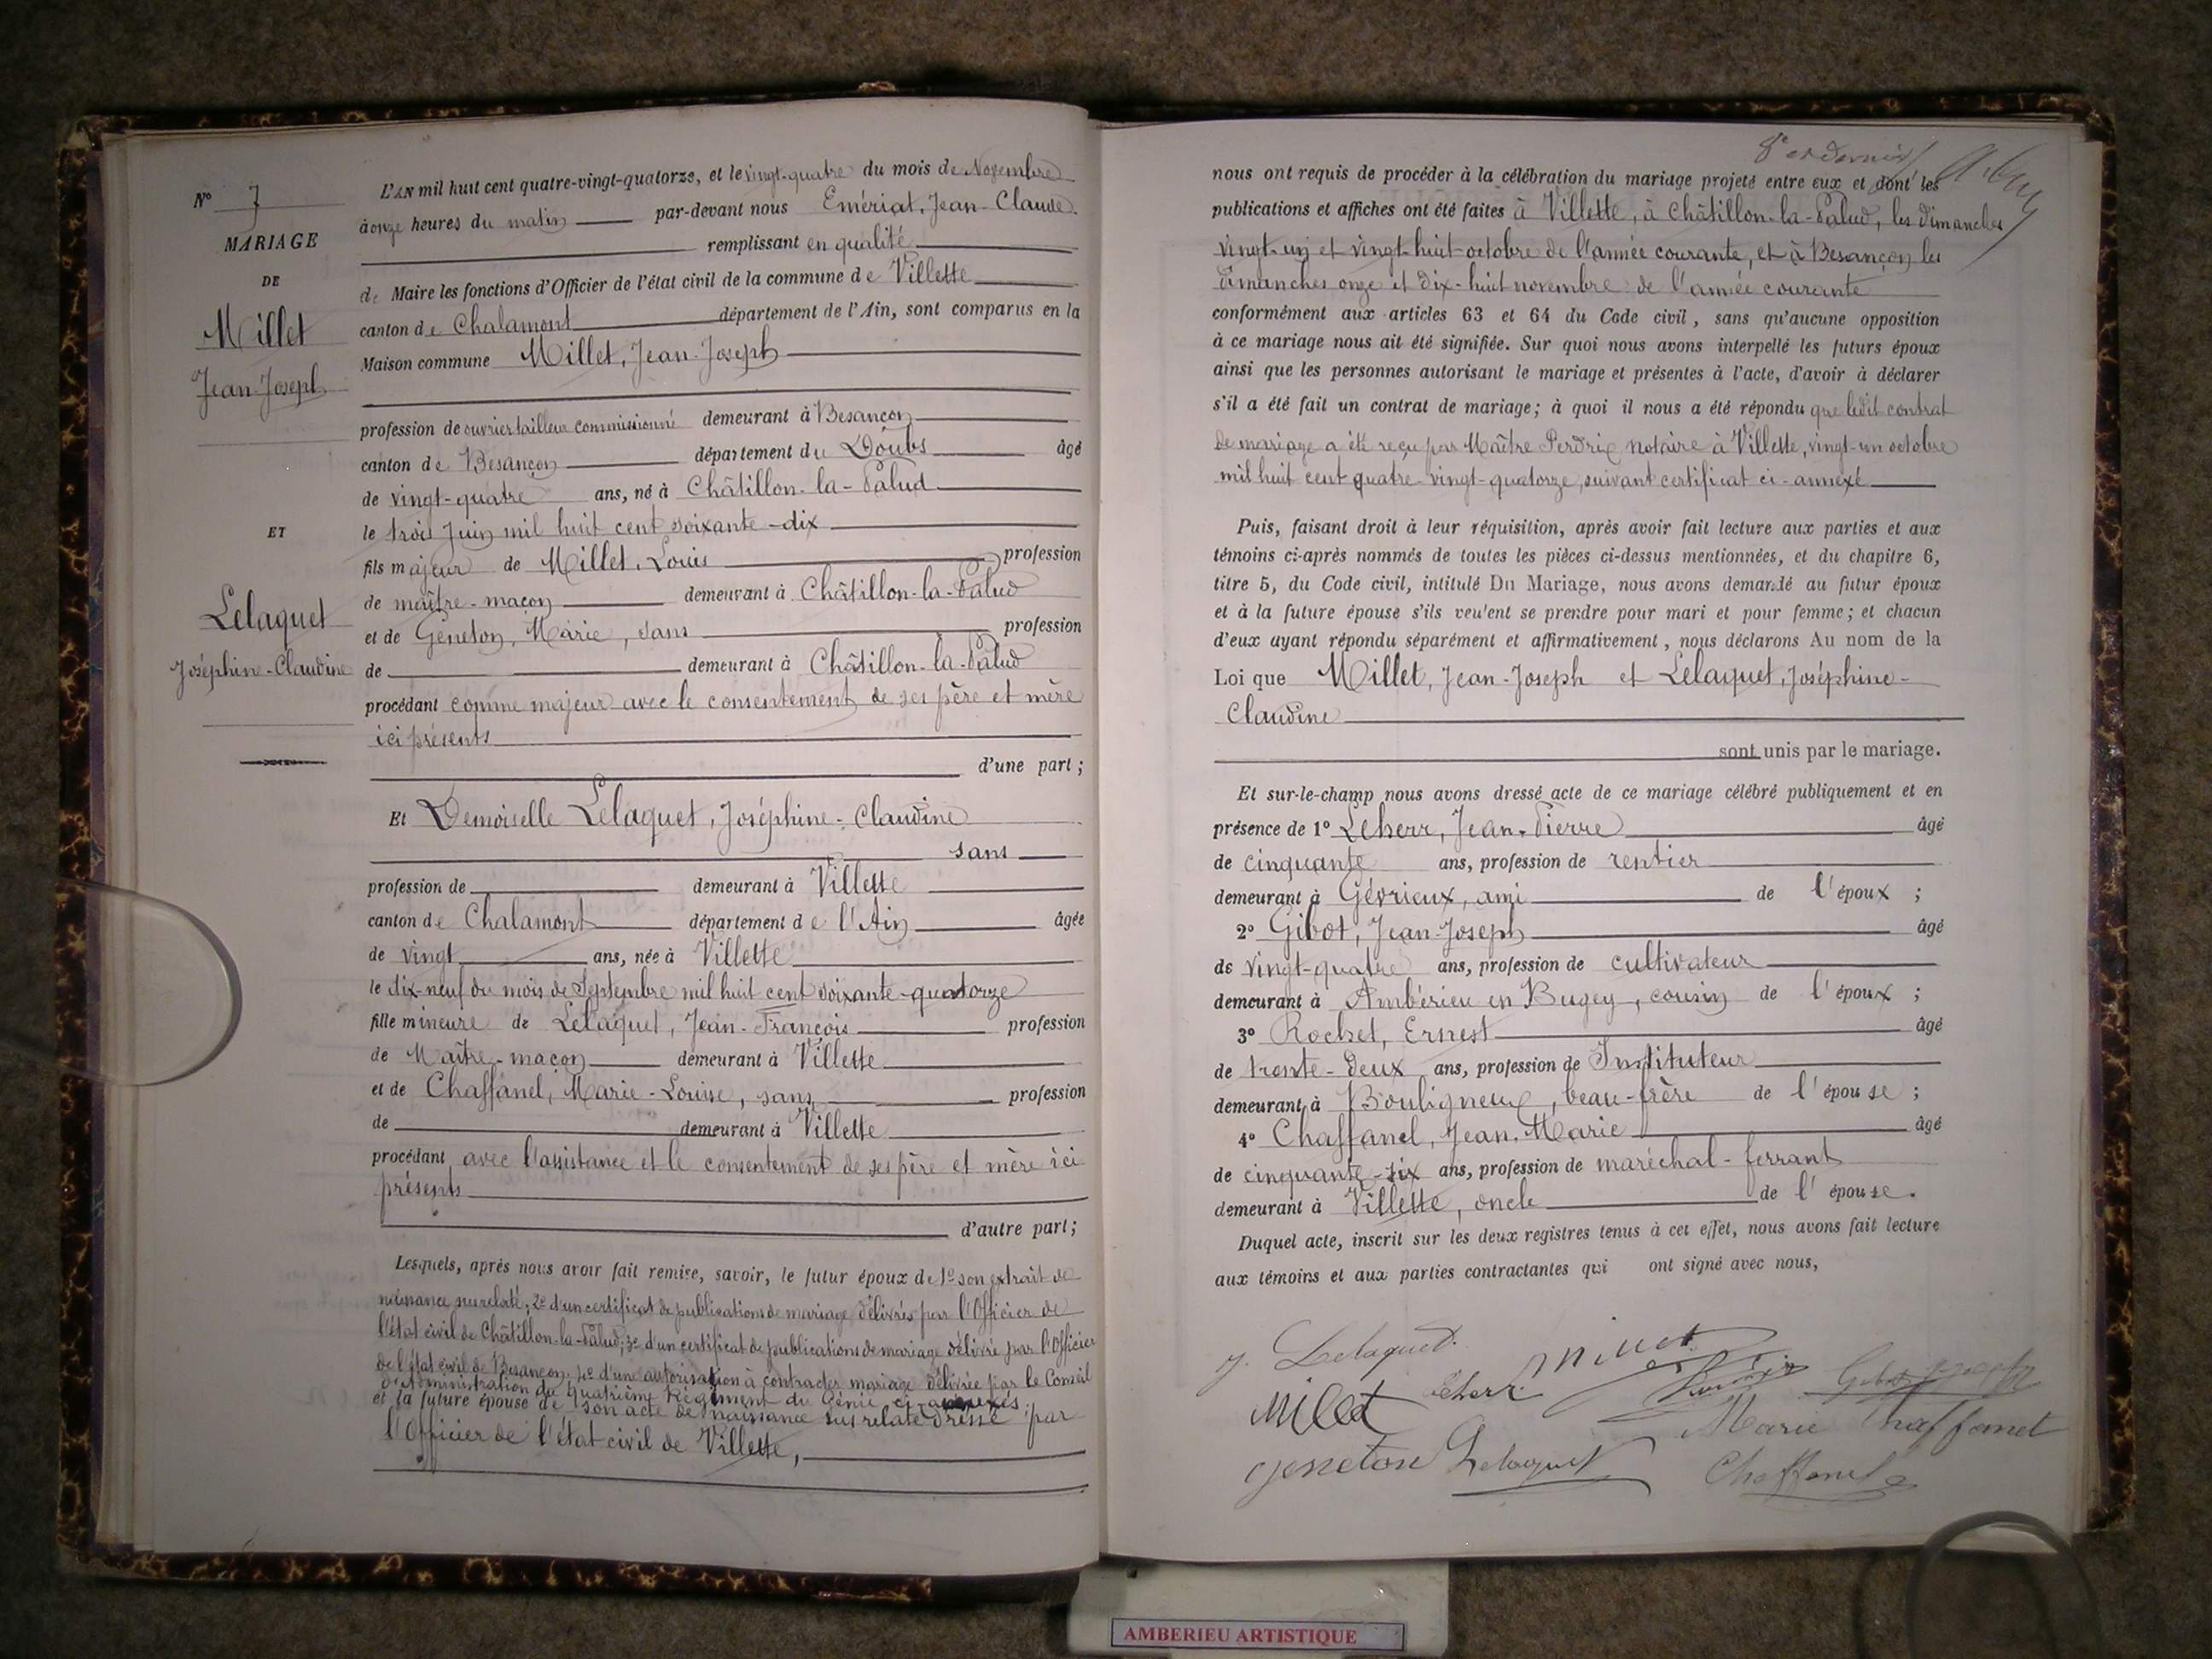 N° 7
MARIAGE
DE
Millet
Jean-Joseph
ET
Lelaquet
Joséphine-Claudine
L'AN mil huit cent quatre-vingt-quatorze, et le vingt-quatre du mois de Novembre
à onze heures du matin par-devant nous Emériat, Jean-Claude.
remplissant en qualité
de Maire les fonctions d'Officier de l'état civil de la commune de Villette
canton de Chalamont département de l'Ain, sont comparus en la
Maison commune Millet, Jean-Joseph
profession de ouvrier tailleur commissionné demeurant à Besançon
canton de Besançon département du Doubs âgé
de vingt-quatre ans, né à Châtillon-la-Palud
le trois Juin mil huit cent soixante-dix
fils majeur de Millet, Louis profession
de maître-maçon demeurant à Châtillon-la-Palud
et de Geneton, Marie, sans profession
de demeurant à Châtillon-la-Palud
procédant comme majeur avec le consentement de ses père et mère
ici présents
d'une part;
Et Demoiselle Lelaquet, Joséphine-Claudine
sans
profession de demeurant à Villette
canton de Chalamont département de l'Ain âgée
de vingt ans, née à Villette
le dix-neuf du mois de Septembre mil huit cent soixante-quatorze
fille mineure de Lelaquet, Jean-François profession
de Maître-maçon demeurant à Villette
et de Chaffanel, Marie-Louise, sans profession
de demeurant à Villette
procédant avec l'assistance et le consentement de ses père et mère ici
présents
d'autre part;
Lesquels, après nous avoir fait remise, savoir, le futur époux de 1° son extrait de
naissance susrelaté; 2° d'un certificat de publications de mariage délivrés par l'Officier de
l'état civil de Châtillon-la-Palud; 3° d'un certificat de publications de mariage délivré par l'Officier
de l'état civil de Besançon, 4° d'une autorisation à contracter mariage délivrée par le Conseil
d'Administration du Quatrième Régiment du Génie ci-annexés.
et la future épouse de son acte de naissance susrelaté dressé par
l'Officier de l'état civil de Villette,
8e et dernier
nous ont requis de procéder à la célébration du mariage projeté entre eux et dont les
publications et affiches ont été faites à Villette, à Châtillon-la-Palud, les dimanches
vingt-un et vingt-huit octobre de l'année courante, et à Besançon les
dimanches onze et dix-huit novembre de l'année courante
conformément aux articles 63 et 64 du Code civil, sans qu'aucune opposition
à ce mariage nous ait été signifiée. Sur quoi nous avons interpellé les futurs époux
ainsi que les personnes autorisant le mariage et présentes à l'acte, d'avoir à déclarer
s'il a été fait un contrat de mariage; à quoi il nous a été répondu que ledit contrat
de mariage a été reçu par Maître Perdrix notaire à Villette, vingt-un octobre
mil huit cent quatre-vingt-quatorze, suivant certificat ci-annexé
Puis, faisant droit à leur réquisition, après avoir fait lecture aux parties et aux
témoins ci-après nommés de toutes les pièces ci-dessus mentionnées, et du chapitre 6,
titre 5, du Code civil, intitulé Du Mariage, nous avons demandé au futur époux
et à la future épouse s'ils veulent se prendre pour mari et pour femme; et chacun
d'eux ayant répondu séparément et affirmativement, nous déclarons Au nom de la
Loi que Millet, Jean-Joseph et Lelaquet, Joséphine-
Claudine
sont unis par le mariage.
Et sur-le-champ nous avons dressé acte de ce mariage célébré publiquement et en
présence de 1° Leherr, Jean-Pierre âgé
de cinquante ans, profession de rentier
demeurant à Gévrieux, ami de l'époux ;
2° Gibot, Jean-Joseph âgé
de vingt-quatre ans, profession de cultivateur
demeurant à Ambérieu en Bugey, cousin de l'époux ;
3° Rochet, Ernest âgé
de trente-deux ans, profession de Instituteur
demeurant à Bouligneux, beau-frère de l'épouse ;
4° Chaffanel, Jean-Marie âgé
de cinquante-six ans, profession de maréchal-ferrant
demeurant à Villette, oncle de l'épouse.
Duquel acte, inscrit sur les deux registres tenus à cet effet, nous avons fait lecture
aux témoins et aux parties contractantes qui ont signé avec nous,
J. Lelaquet.
Millet
Leherr
Marie Chaffanel
geneton Lelaquet
Chaffanel
AMBERIEU ARTISTIQUE